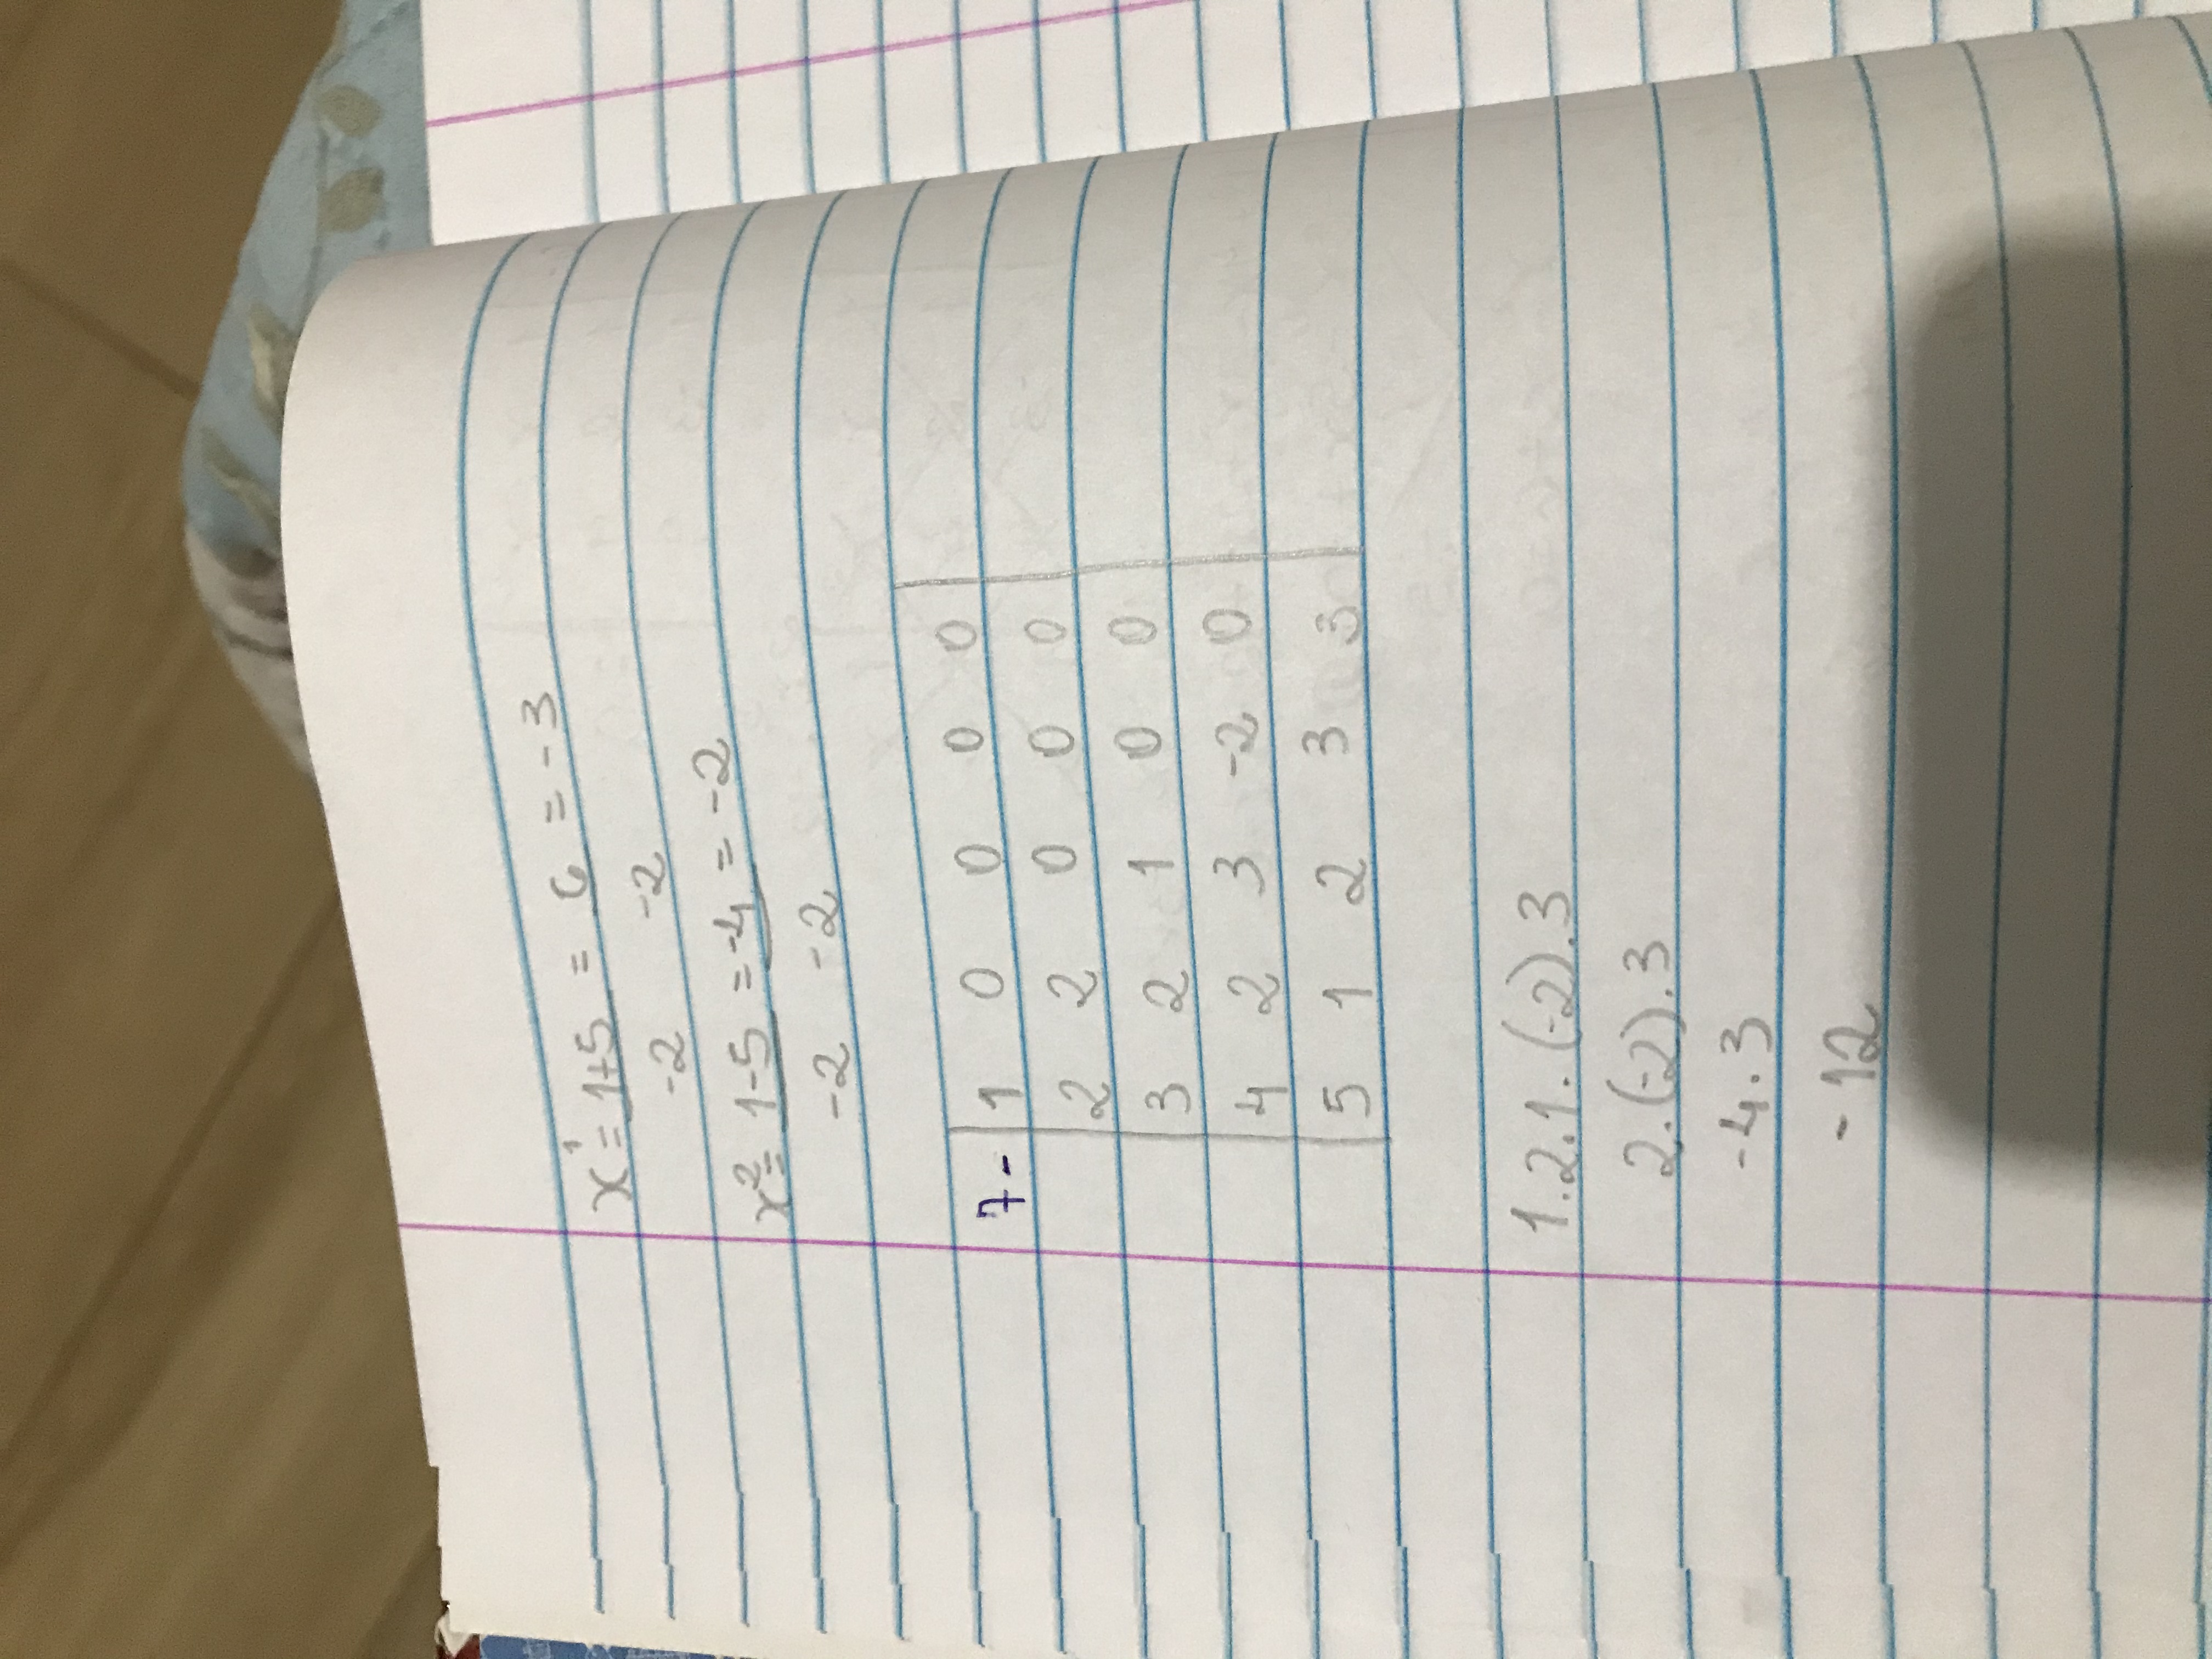 x¹ = 1+5 = 6 = -3
-2 -2
x² = 1-5 = -4 = -2
-2 -2
7- 1 0 0 0 0
2 2 0 0 0
3 2 1 0 0
4 2 3 -2 0
5 1 2 3 3
1.2.1.(-2).3
2.(-2).3
-4.3
-12